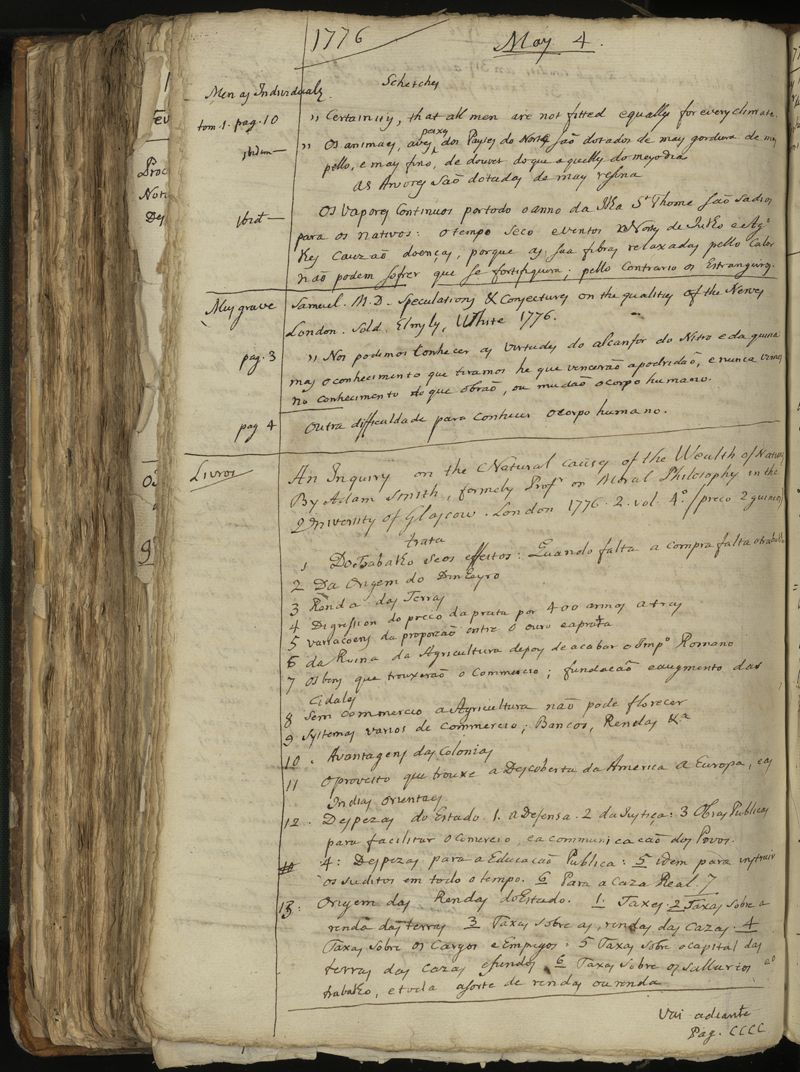 1776
May 4.
Men as Individuals.
Schetches
tom. 1. pag. 10
" Certainnly, that all men are not fitted equally for every climate.
ibidem —
" Os animaes, aves, peixes dos Payses do Norte são dotados de mais gordura de mais
pello, e mais fino, de douver do que aquelles do mayo dia
as Arvores são dotadas de mais resina
ibid —
Os vapores Continuos por todo o anno da Ilha St Thome são sadios
para os nativos: o tempo seco e ventos Nortes de Julho e Agto
lhes cauzão doenças, porque as sua fibras relaxadas pello Calor
não podem sofrer que se fortifiquem; pello Contrario os Estrangeiros.
Musgrave
Samuel. M.D. Speculations & Conjectures on the qualities of the Nerves
London. Sold. Elmsly, White 1776.
pag. 3
" Nos podemos Conhecer as virtudes do alcanfor do Nitro e da quina
mas o conhecimento que tiramos he que vencerão a podridão, e nunca viemos
no conhecimento do que obrão, ou mudão o corpo humano.
pag 4
outra difficuldade para Conhecer o corpo humano.
Livros
An Inquiry on the Natural causes of the Wealth of Nations
By Adam Smith, formely Profr on Moral Philosophy in the
University of Glascow. London 1776. 2. vol. 4.º / preco 2 guineas
trata
1 Do Trabalho seos effeitos: Quando falta a compra falta o trabalho
2 Da Origem do Dinheyro
3 Renda das Terras
4 Digression do preco da prata por 400 annos atras
5 variacoens da proporcão entre o ouro e a prata
6 da Ruina da Agricultura depois de acabar o Impº Romano
7 Os bens que trouxerão o Commercio; fundacão e augmento das
Cidades
8 Sem commercio a Agricultura não pode florecer
9 Systemas varios de Commercio; Bancos, Rendas &a
10. Avantagens das Colonias
11 O proveito que trouxe a Descoberta da America a Europa, e as
Indias Orientaes
12. Despezas do Estado 1. a Defensa. 2 da Justiça: 3 Obras Publicas
para facilitar o Comercio, e a communicacão dos Povos.
4: Despezas para a Educacão Publica: 5 idem para instruir
os suditos em todo o tempo. 6 Para a Caza Real. 7
13: Origem das Rendas do Estado. 1. Taxes. 2 Taxas sobre a
renda das terras 3 Taxas sobre as rendas das Cazas. 4
Taxas sobre os Cargos e Empregos: 5 Taxas sobre o capital das
terras das Cazas e fundos 6 Taxas sobre os sallarios ao
trabalho, e toda a sorte de rendas ou renda
Vai adiante
Pag. CCCC